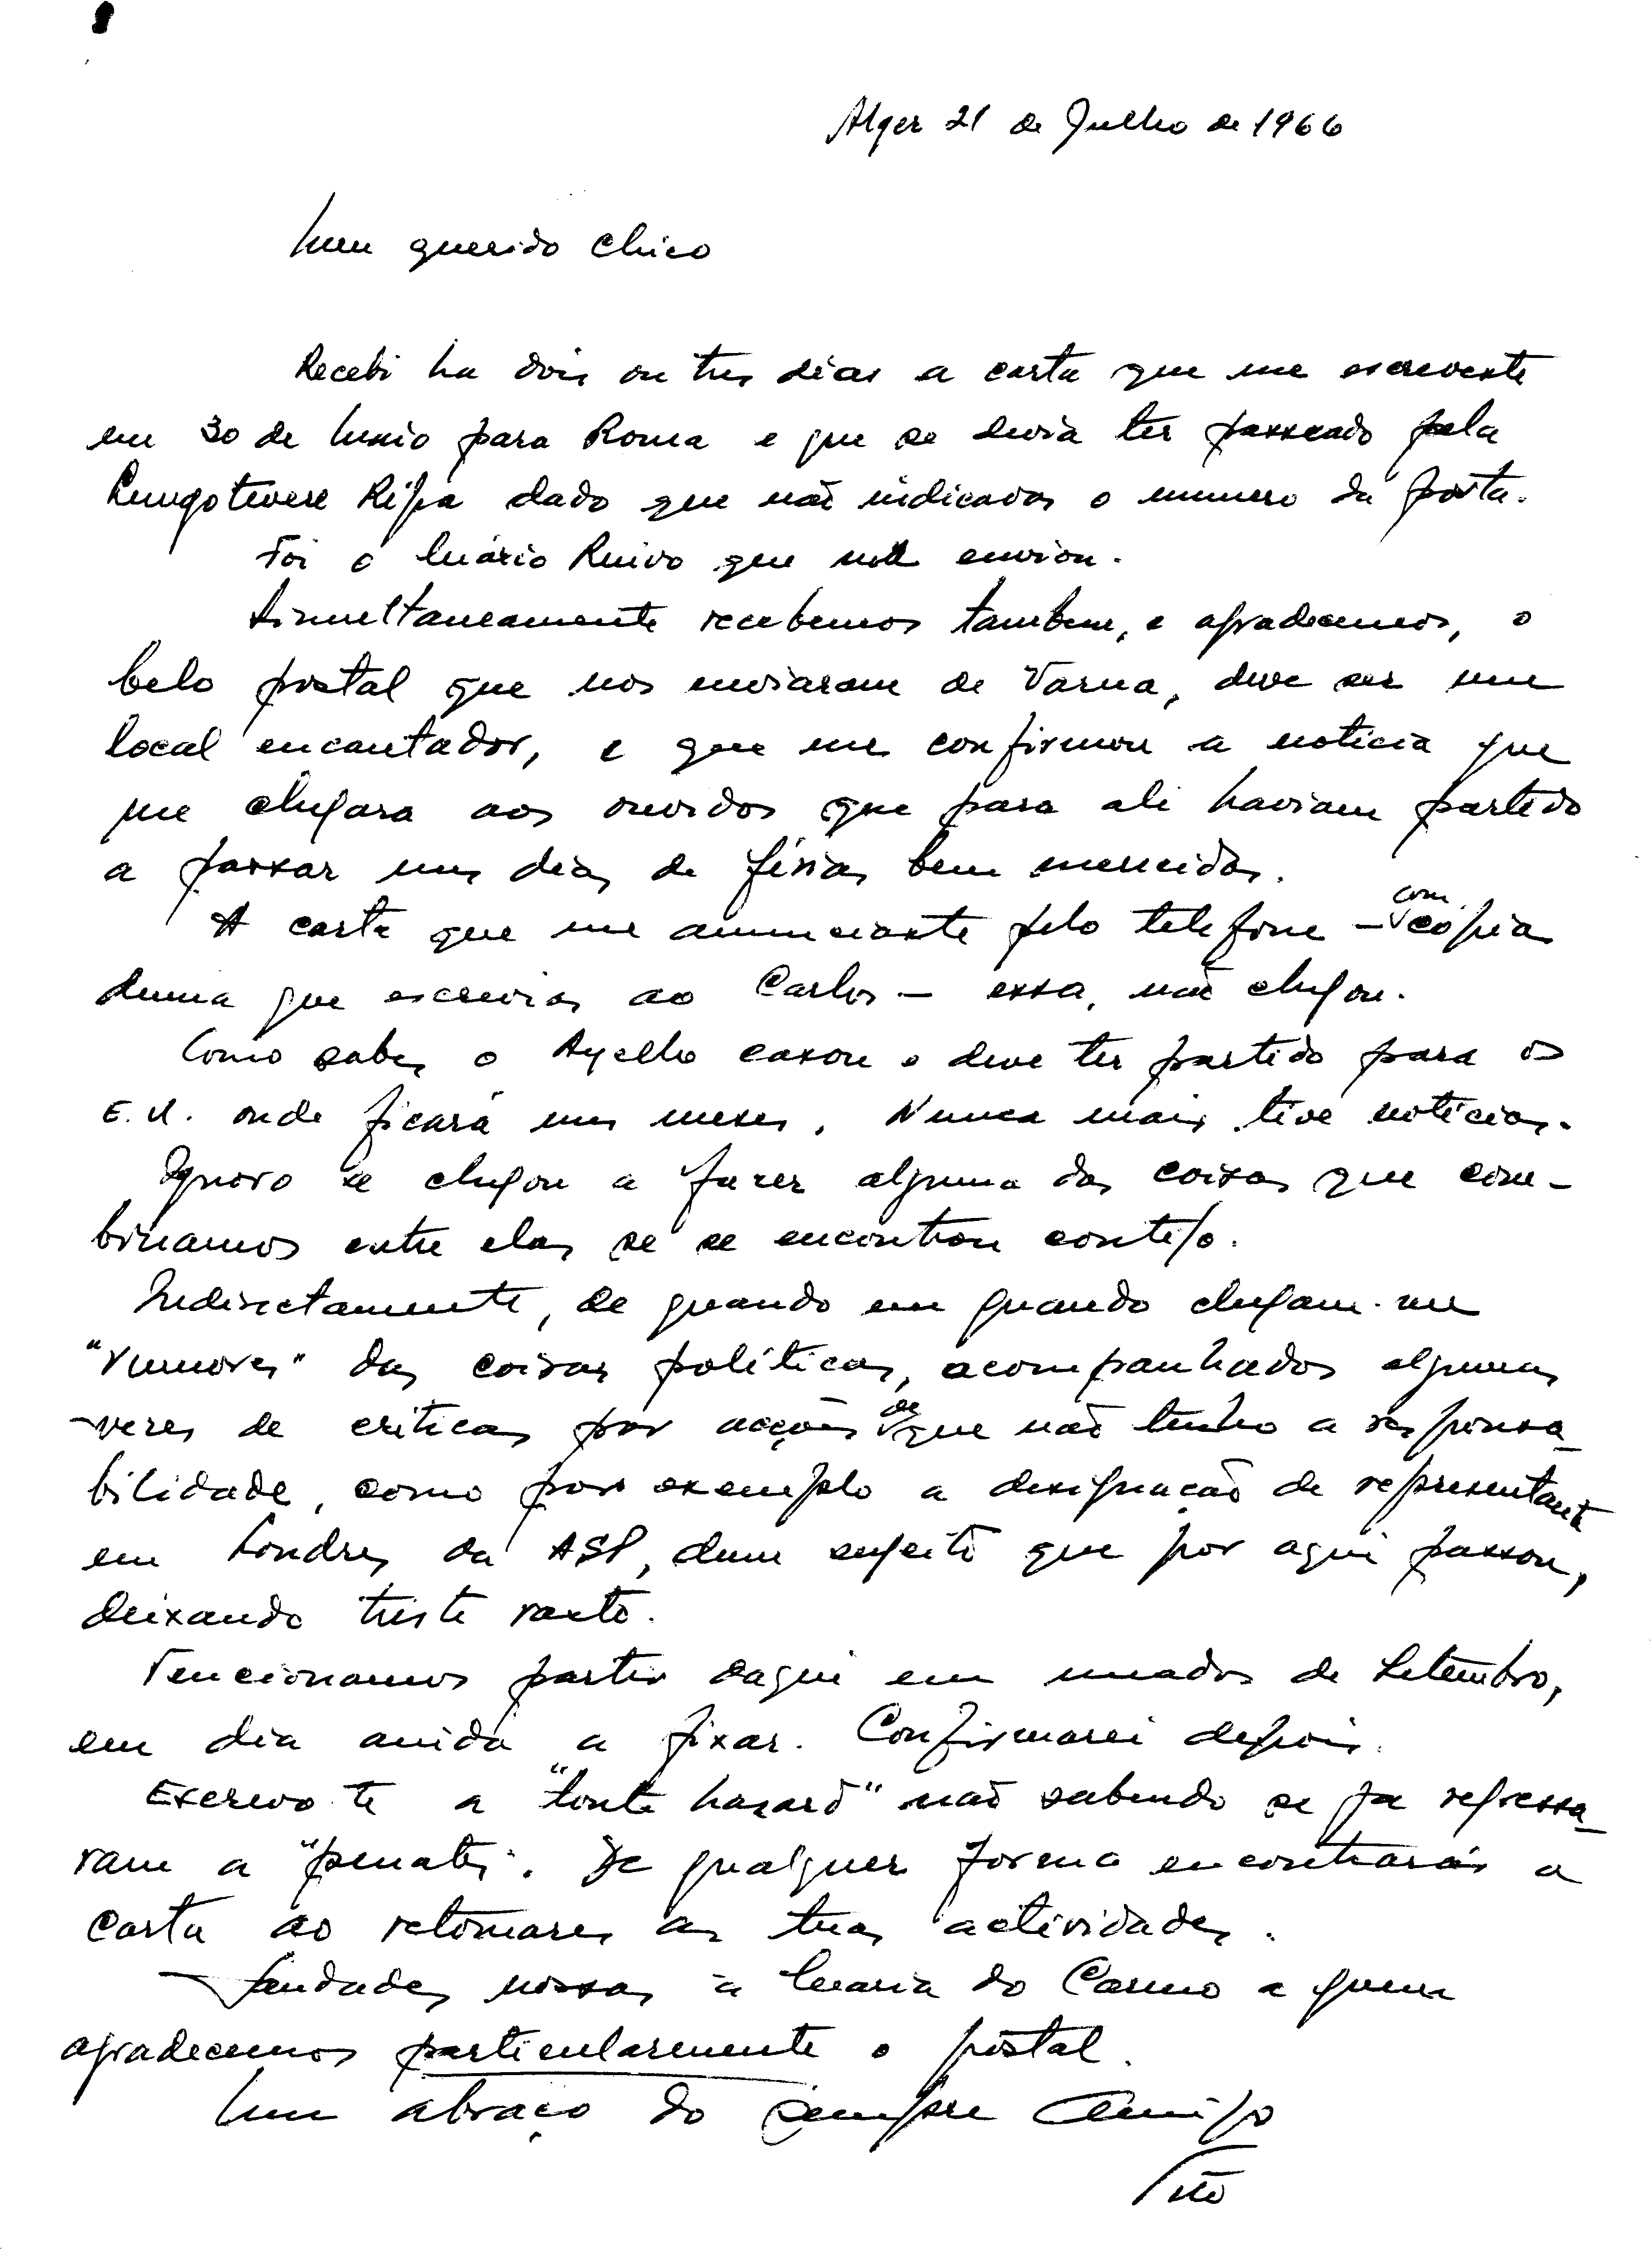 Alger 21 de Julho de 1966
Meu querido Chico
Recebi ha dois ou tres dias a carta que me escreveste
em 30 de Maio para Roma e que se devia ter passeado pela
Lungotevere Ripa dado que não indicavas o numero da porta.
Foi o Mário Ruivo que ma enviou.
Simultaneamente recebemos tambem, e agradecemos, o
belo postal que nos enviaram de Varna, deve ser um
local encantador, e que me confirmou a noticia que
me chegara aos ouvidos que para ali haviam partido
a passar uns dias de férias bem merecidas.
A carta que me anunciaste pelo telefone – com copia
duma que escrevias ao Carlos – essa, não chegou.
Como sabes o Ayelho casou e deve ter partido para os
E.U. onde ficará uns meses. Nunca mais tive noticias.
Ignoro se chegou a fazer alguma das coisas que com-
binamos entre elas se se encontrou contigo.
Indirectamente, de quando em quando chegam-me
"rumores" das coisas políticas, acompanhados algumas
vezes de criticas por acções de que não tenho a responsa-
bilidade, como por exemplo a designação de representante
em Londres da ASP, dum sujeito que por aqui passou,
deixando triste rasto.
Tencionamos partir daqui em meados de Setembro,
em dia ainda a fixar. Confirmarei depois.
Escrevo-te a "tout hasard" não sabendo se ja regressa-
ram a "penates". De qualquer forma encontrarás a
carta ao retomares as tuas actividades.
Saudades nossas à Maria do Carmo a quem
agradecemos particularmente o postal.
Um abraço do sempre Amigo
Tito